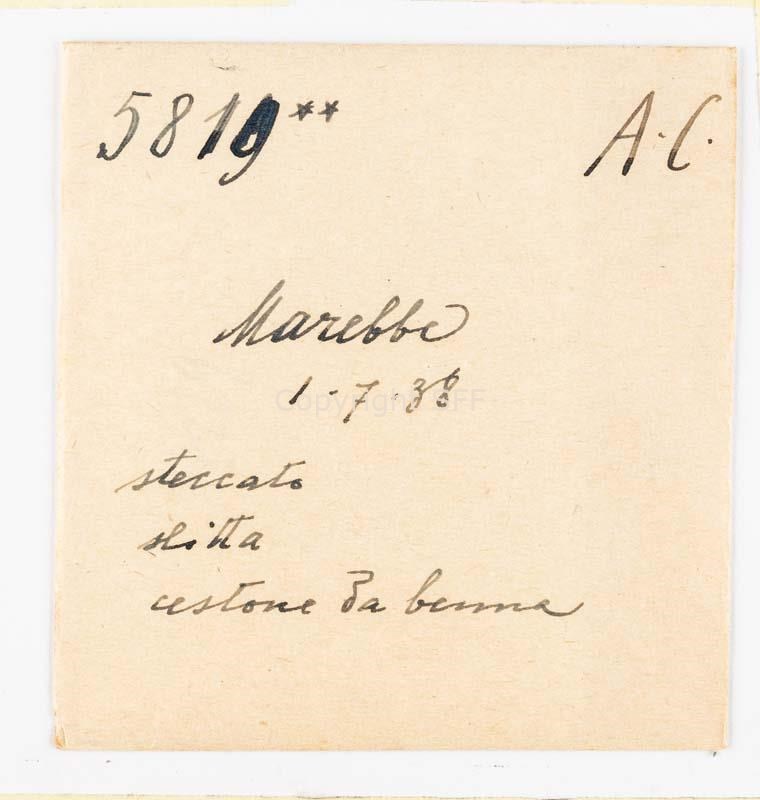 5819** A.C.
Marebbe
1-7-38
steccato
slitta
cestone da benna